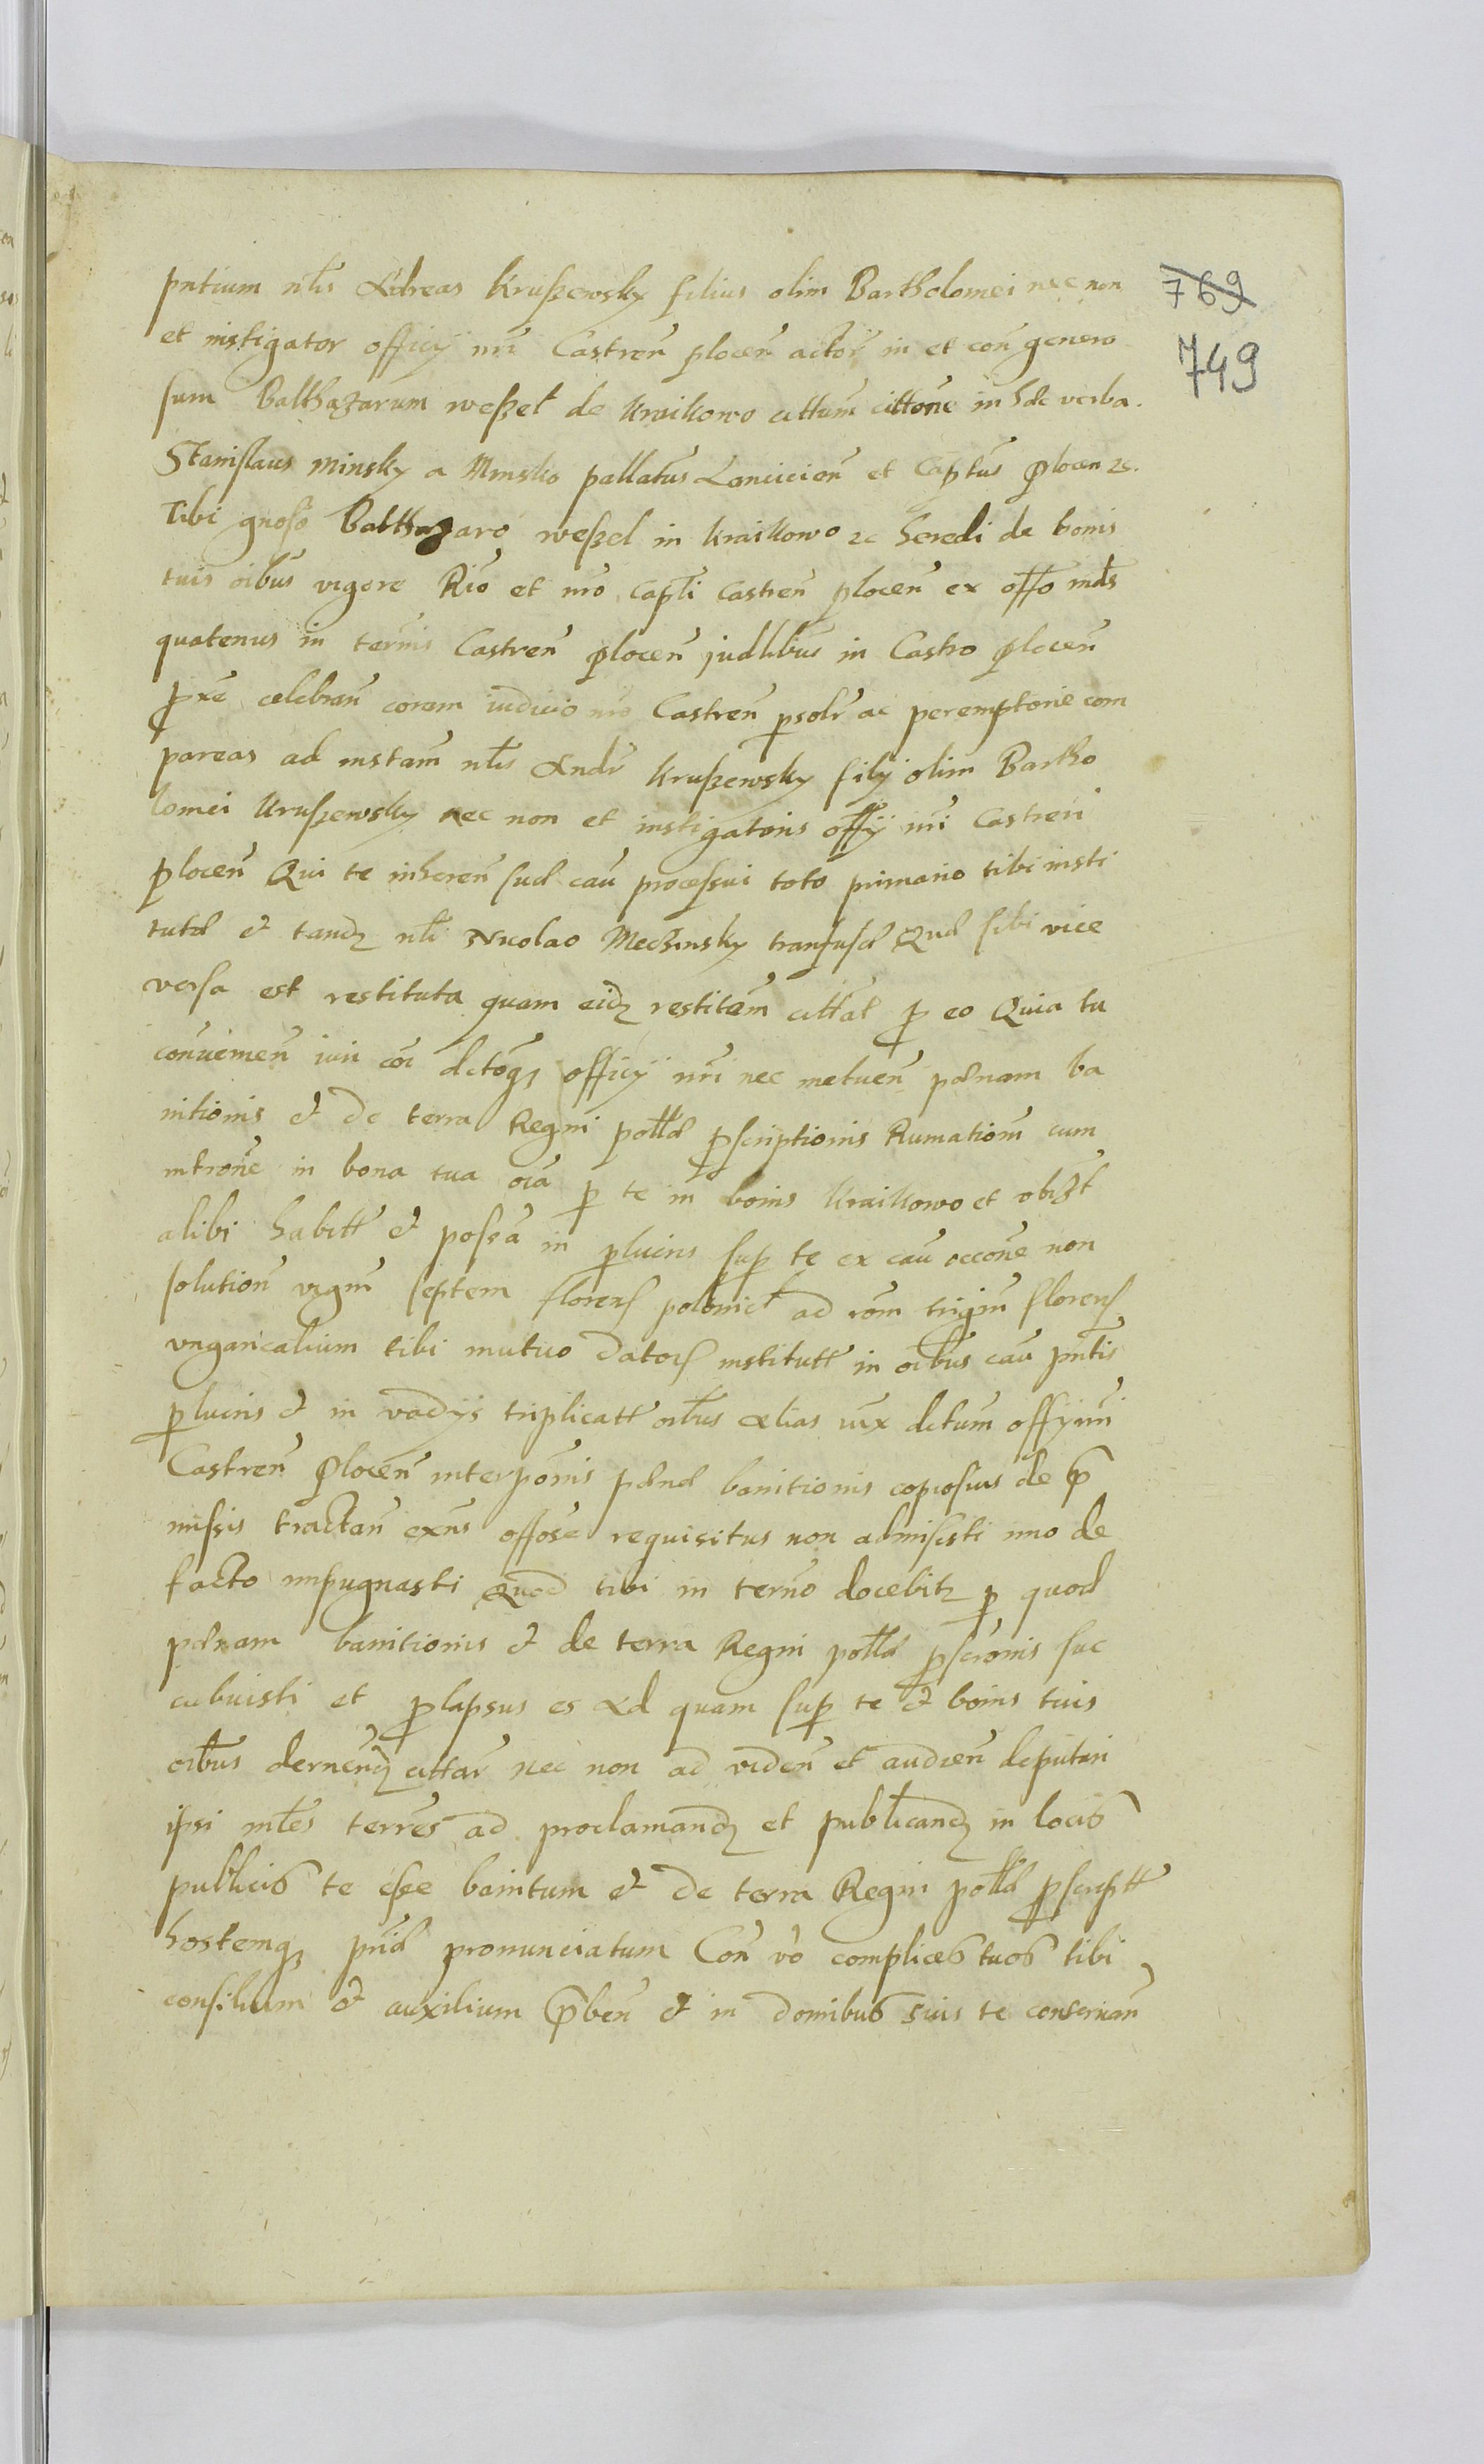 pntium nlis Adreas Kruszewsky filius olim Bartholomei nec non
769
et instigator officij nri Castren plocen actor in et con genero
749
sum Balthazarum weszel de Kraikowo cittum cittone in hæc verba.
Stanislaus Minsky a Minsko pallatus Lancicien et Captus Plocen zc.
Tibi gnoso Balthazaro weszel in Kraikowo zc heredi de bonis
tuis oibus vigore Rio et nro capti castren plocen ex offo mds
quatenus in termis Castren plocen judlibus in Castro plocen
pxe celebran coram iudicio nro Castren psolr ac peremptorie com
pareas ad instam nlis Andr Kruszewsky filij olim Bartho
lomei Kruszewsky nec non et instigatoris offij nri Castren
plocen Qui te inheren suæ cau processui toto primario tibi insti
tutæ et tandz nli Nicolao Mechinsky transfusæ Quæ sibi vice
versa est restituta quam eidz restitam cittat p eo Quia tu
convemien iuri coi dctoqz officij nri nec metuen pænam ba
nitionis et de terra Regni pollæ pscriptionis Rumationm cum
introne in bona tua oia p te in bonis Kraikowo et obizt
alibi habitt et possa in plucris sup te ex cau occone non
solution vigin septem florens polonicl ad rom trigin florens
vngaricalium tibi mutuo dators institutt in oibus cau pntis
plucris et in vadijs triplicatt oibus alias iux dctum offy nri
Castren Plocen interponis pæna banitionis copiosius de p
missis tractan exns offose requisitus non admisisti imo de
facto impugnasti Quod tibi in termo docebitr p quod
pænam banitionis et de terra Regni pollæ pscronis suc
cubuisti et plapsus es Ad quam sup te et bonis tuis
oibus dernendz cittar nec non ad viden et audien deputari
ipsi mles terres ad proclamandz et publicandz in locis
publicis te esse banitum et de terra Regni pollæ pscriptt
hostemqz priæ pronunciatum Con vo complices tuos tibi
consilium et auxilium pben et in domibus suis te conservan